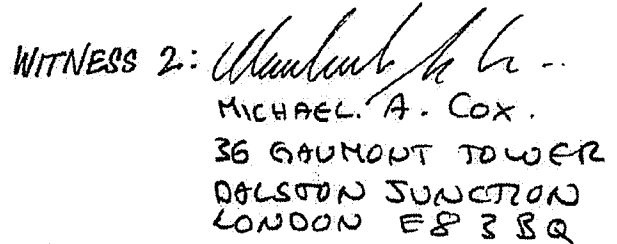 WITNESS 2:
MICHAEL. A. COX.
36 GAUMONT TOWER
DALSTON JUNCTION
LONDON E8 3BQ